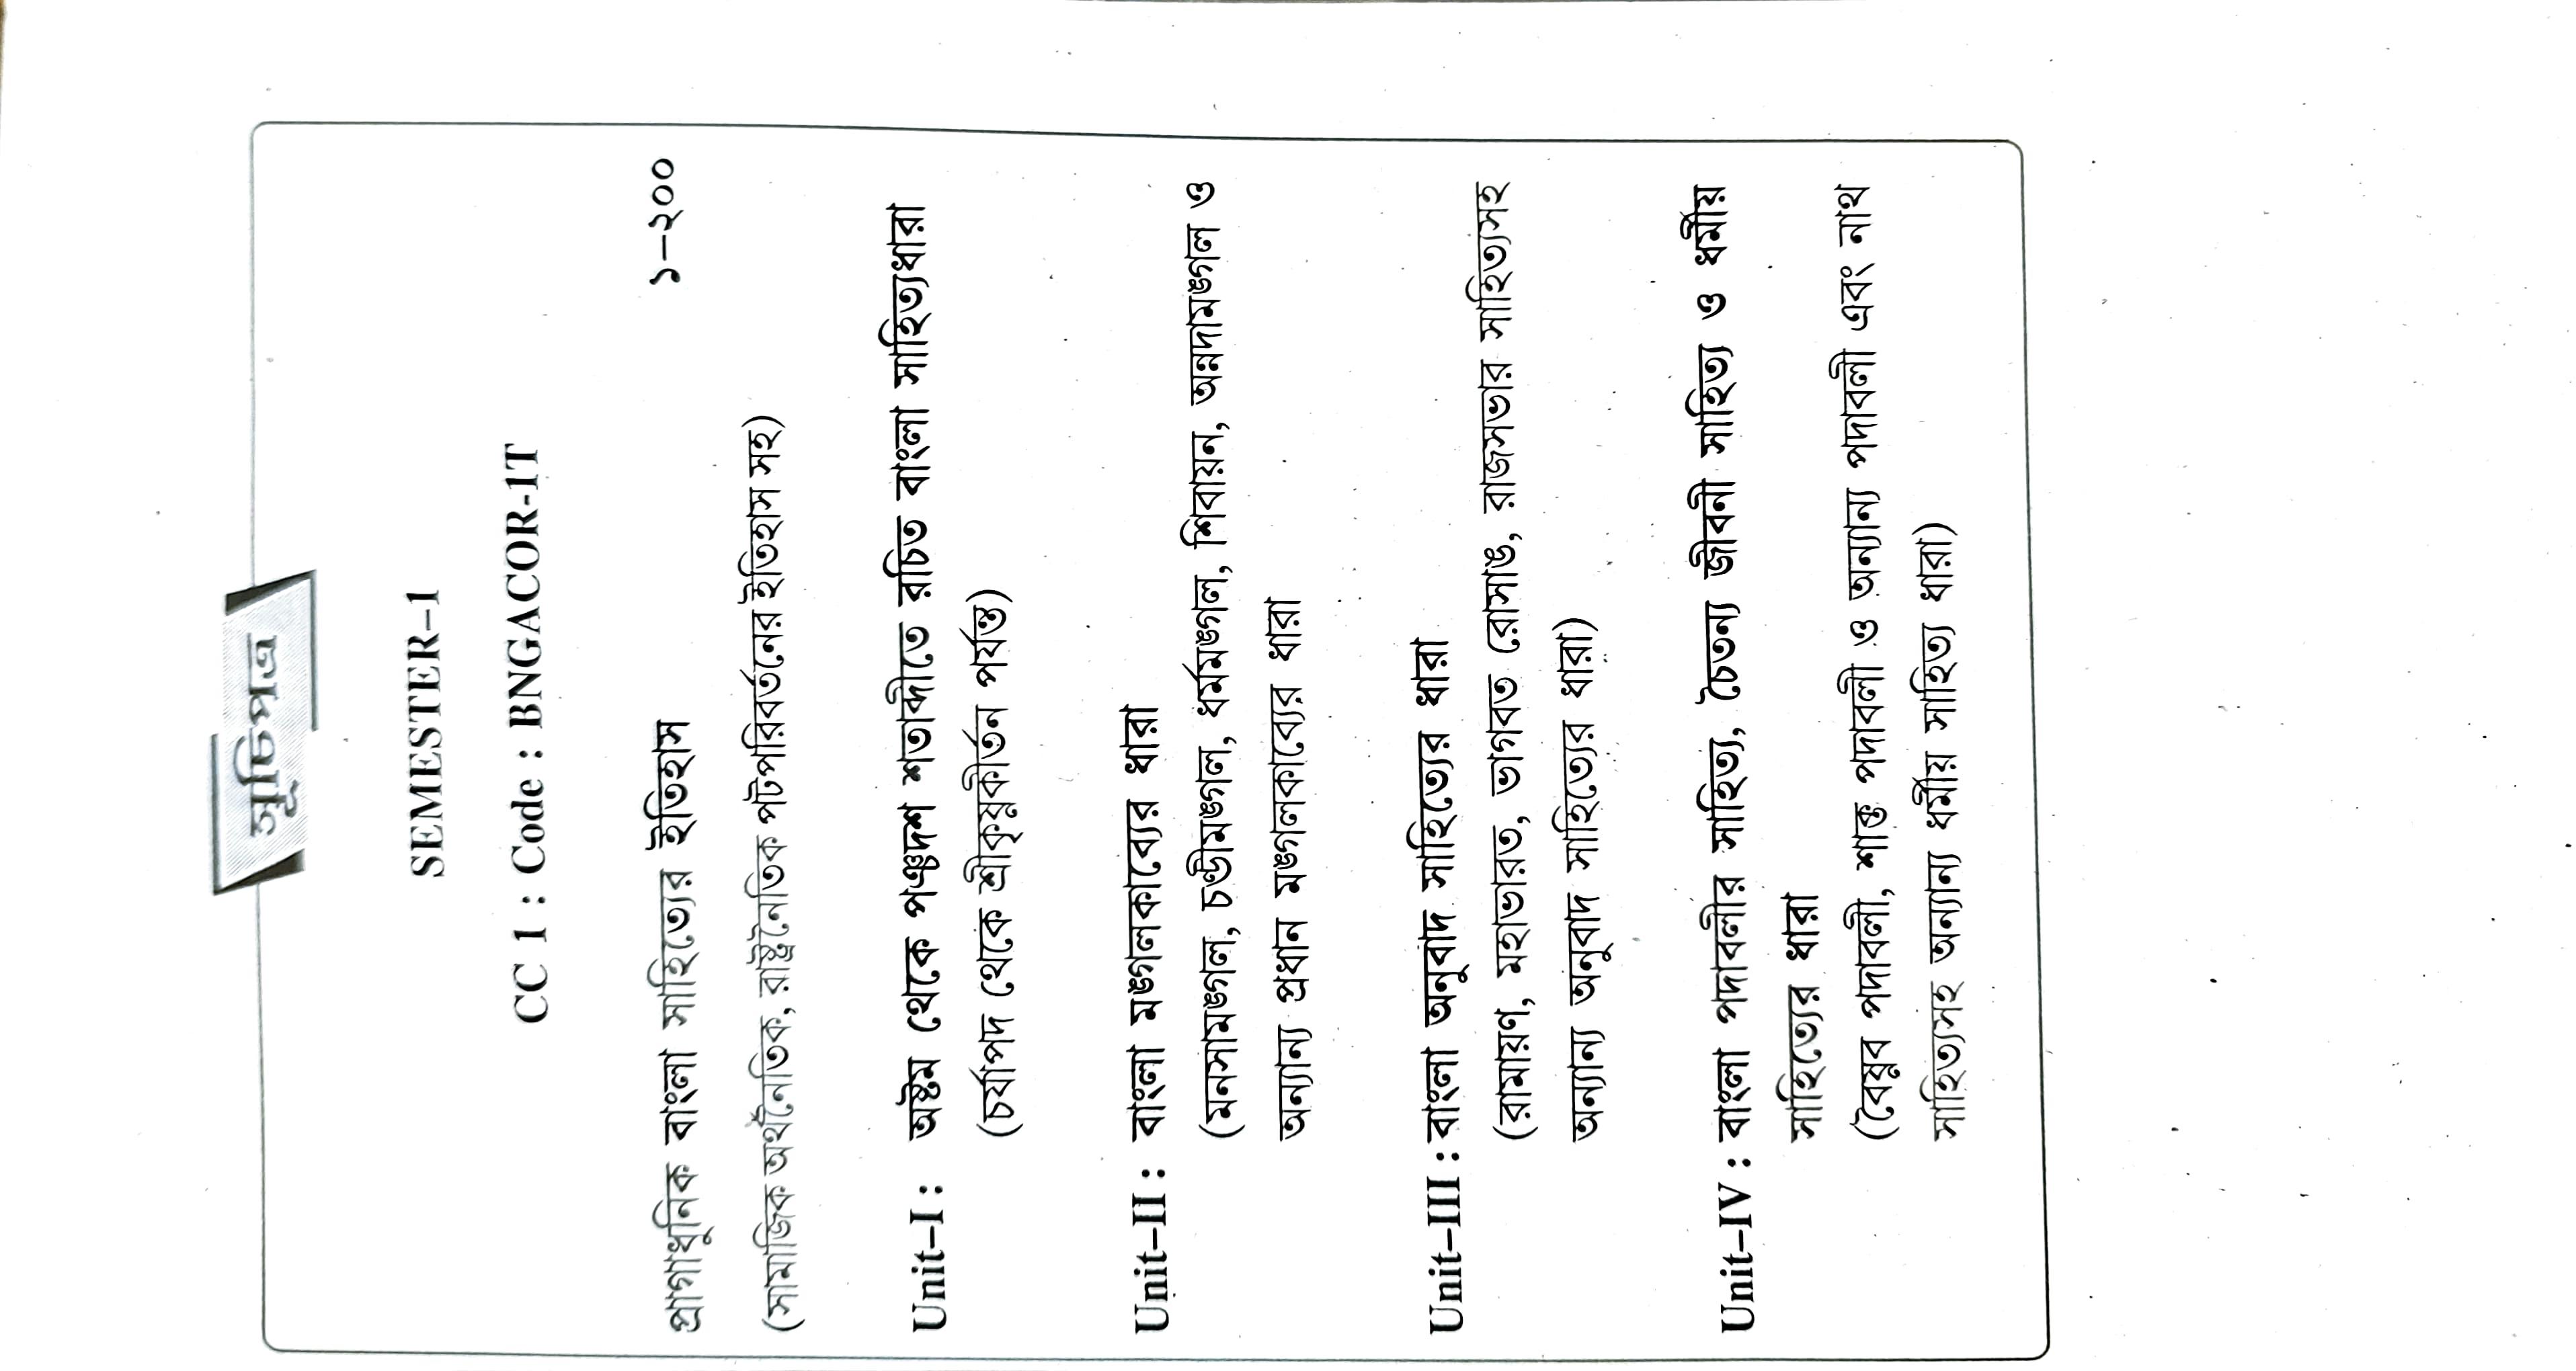 সূচিপত্র
SEMESTER–1
CC 1 : Code : BNGACOR-1T
প্রাগাধুনিক বাংলা সাহিত্যের ইতিহাস ১–২০০
(সামাজিক অর্থনৈতিক, রাষ্ট্রনৈতিক পটপরিবর্তনের ইতিহাস সহ)
Unit–I : অষ্টম থেকে পঞ্চদশ শতাব্দীতে রচিত বাংলা সাহিত্যধারা
(চর্যাপদ থেকে শ্রীকৃষ্ণকীর্তন পর্যন্ত)
Unit–II : বাংলা মঙ্গলকাব্যের ধারা
(মনসামঙ্গল, চণ্ডীমঙ্গল, ধর্মমঙ্গল, শিবায়ন, অন্নদামঙ্গল ও
অন্যান্য প্রধান মঙ্গলকাব্যের ধারা
Unit–III : বাংলা অনুবাদ সাহিত্যের ধারা
(রামায়ণ, মহাভারত, ভাগবত রোসাঙ, রাজসভার সাহিত্যসহ
অন্যান্য অনুবাদ সাহিত্যের ধারা)
Unit–IV : বাংলা পদাবলীর সাহিত্য, চৈতন্য জীবনী সাহিত্য ও ধর্মীয়
সাহিত্যের ধারা
(বৈষ্ণব পদাবলী, শাক্ত পদাবলী ও অন্যান্য পদাবলী এবং নাথ
সাহিত্যসহ অন্যান্য ধর্মীয় সাহিত্য ধারা)